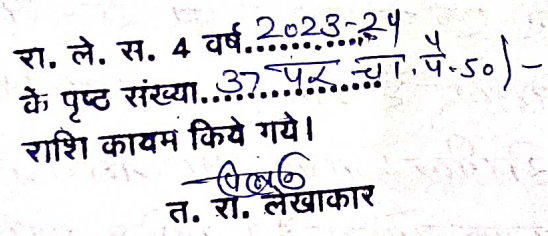 रा. ले. स. 4 वर्ष 2023-24
के पृष्ठ संख्या 37 पर चा. पै. 50)-
राशि कायम किये गये।
त. रा. लेखाकार